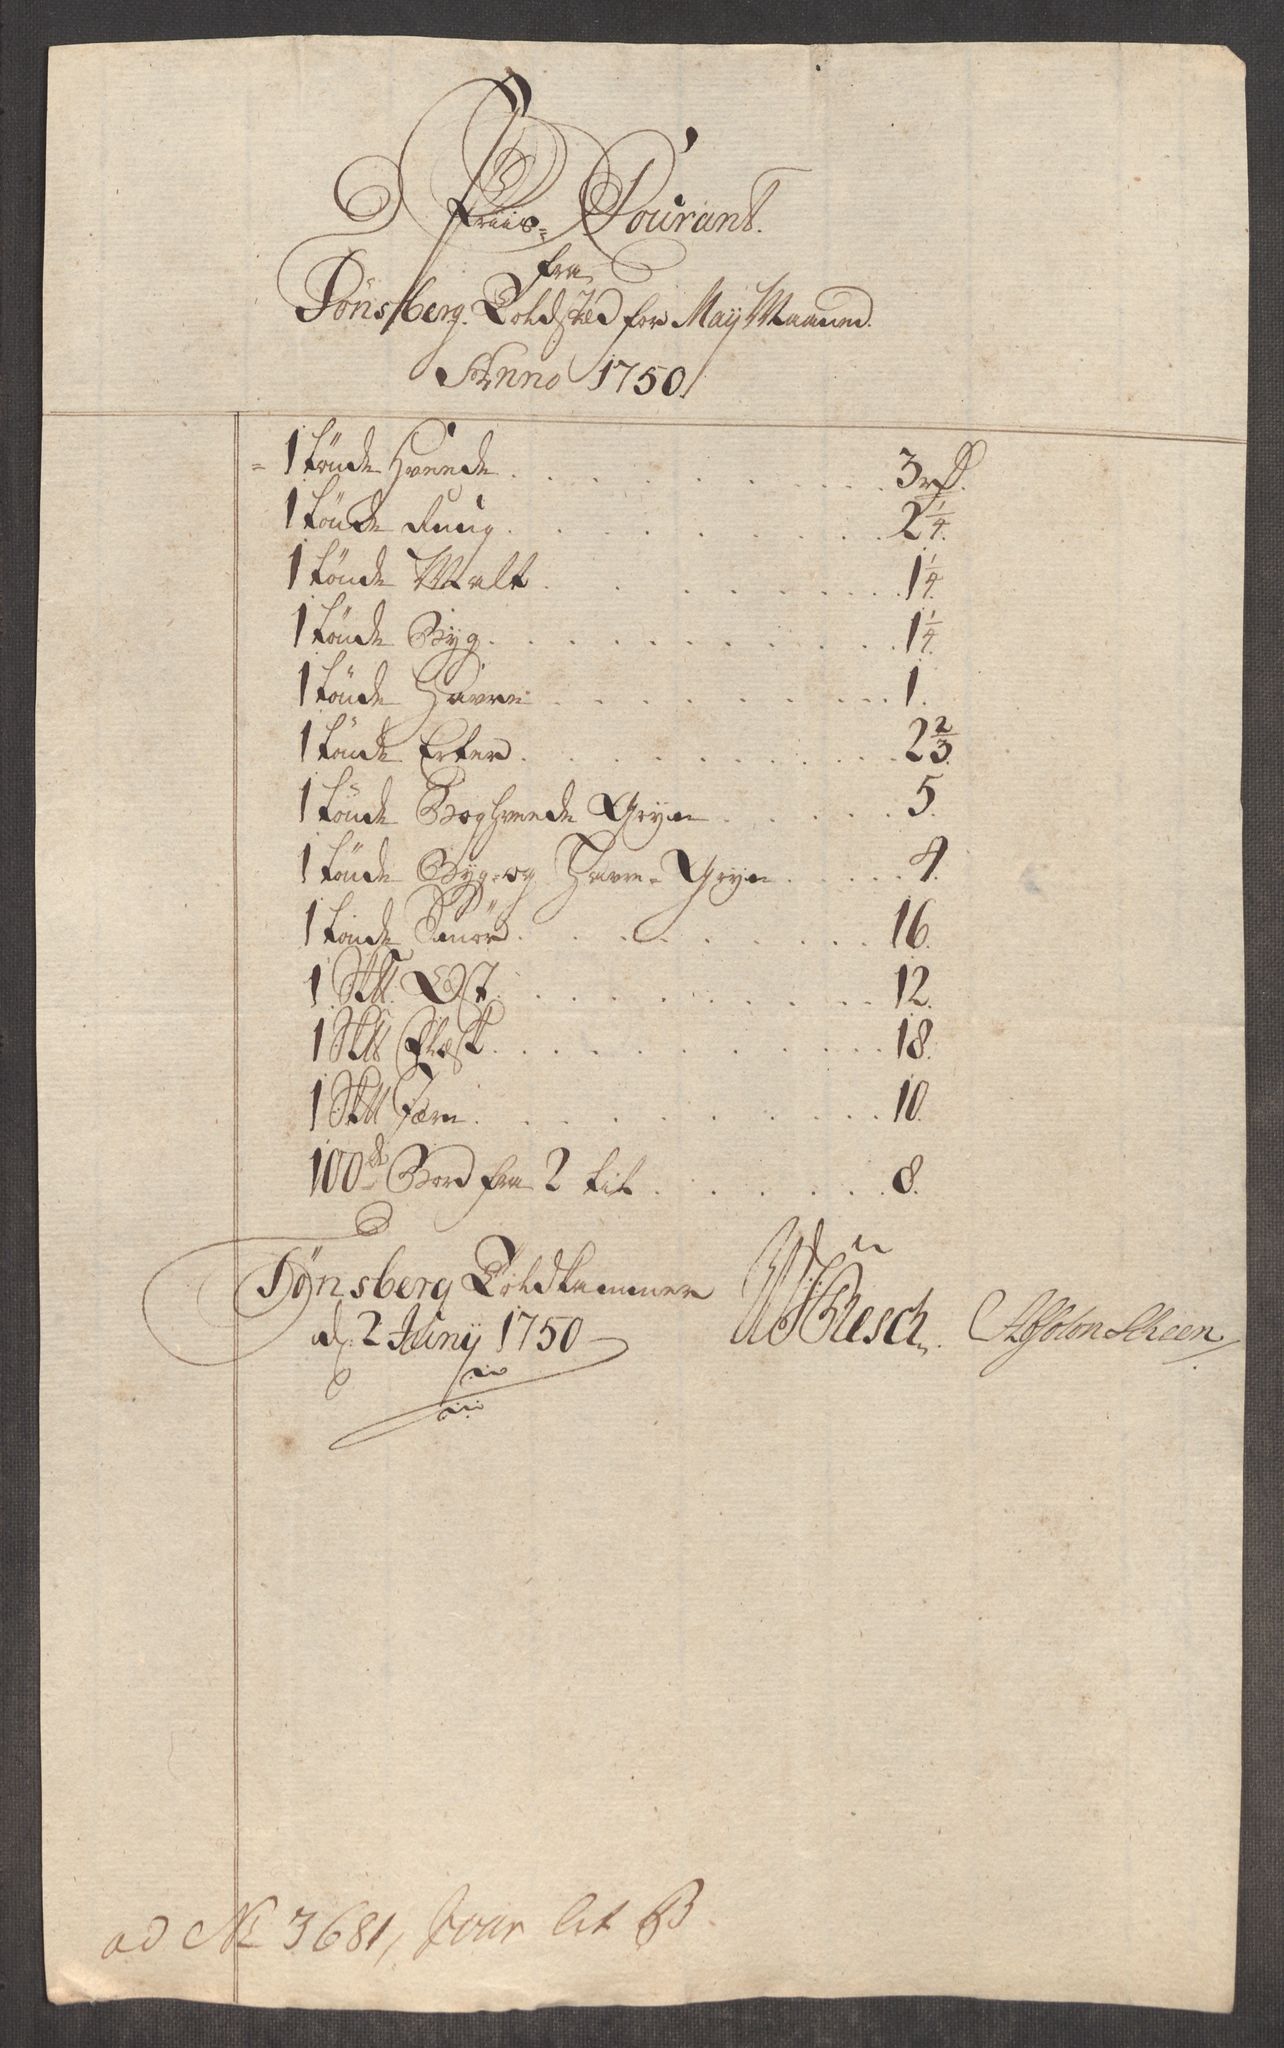 Priis= Courant.
fra
Tönsberg Toldstæd for Maij Maaned.
Anno 1750.
1 tönde Hveede . . . 3 rd.
1 tönde Ruug . . . 2 1/4.
1 tönde Malt . . . 1 1/4.
1 tönde Byg . . . 1 1/4.
1 tönde Havre . . . 1.
1 tönde Erter . . . 2 2/3.
1 tönde Boghveede Gryn . . . 5.
1 tönde Byg- og Havre- Gryn . . . 4.
1 tönde Smör . . . 16.
1 Sk℔ Ost . . . 12.
1 Sk℔ Flæsk . . . 18.
1 Sk℔ Jærn . . . 10.
100de Bord fra 2 til . . . 8.
Tønsberg Toldkammer
d. 2 Juny 1750
Resch. Absolon Scheen
ad No 3681, Jour lit B.